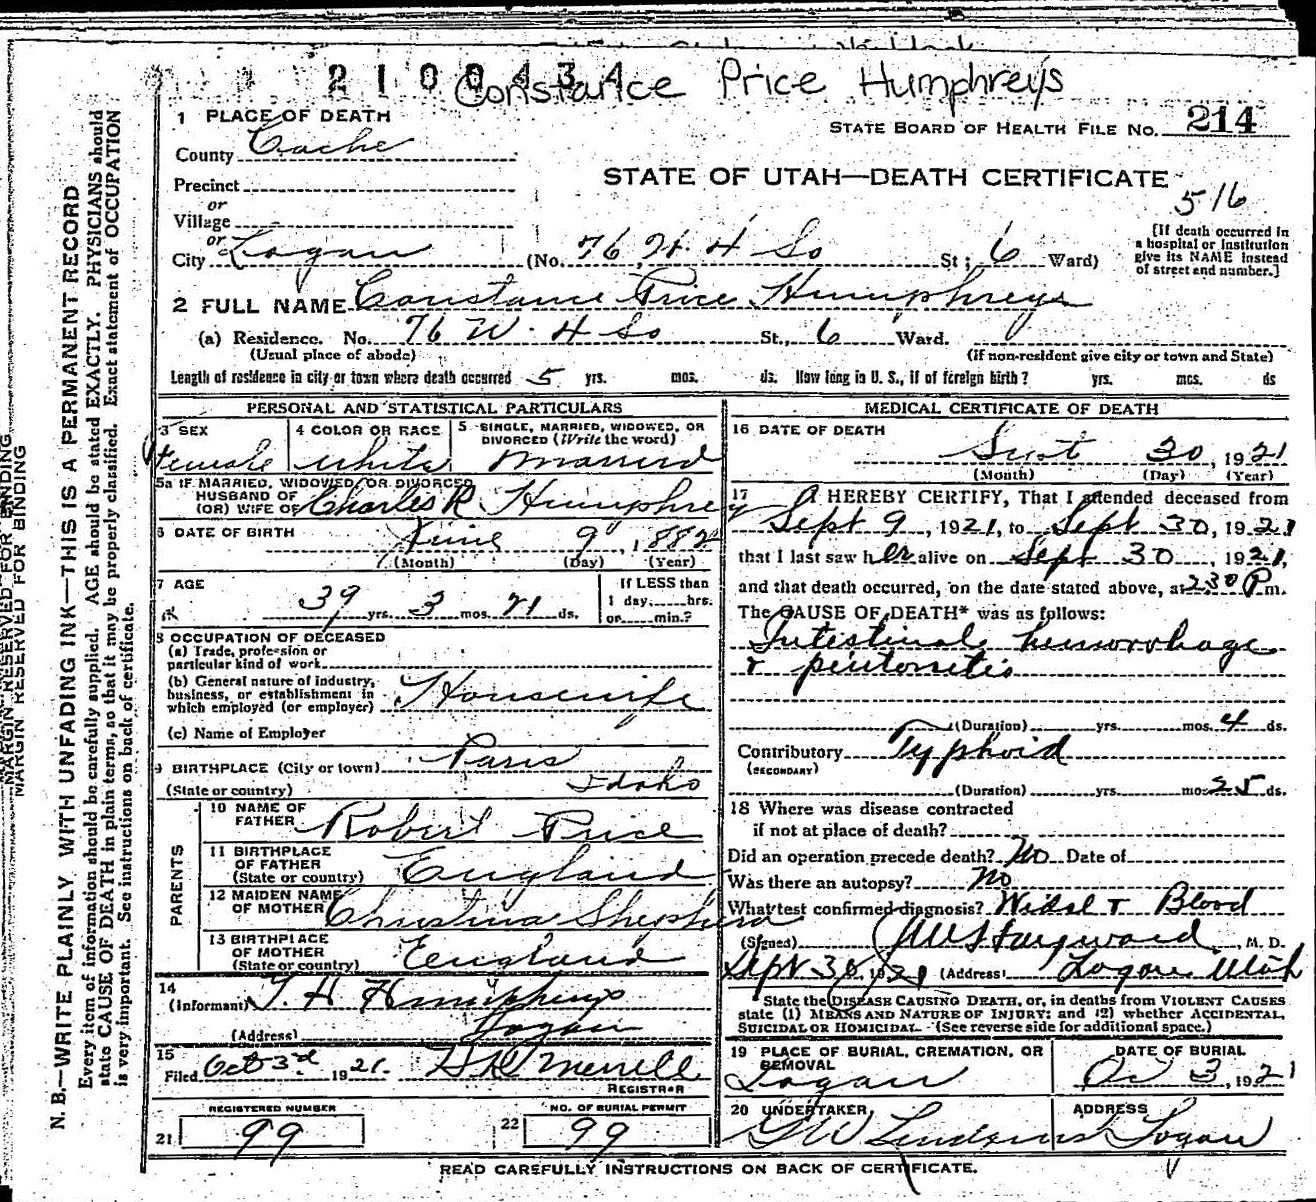 2100434
Constance Price Humphreys
1 PLACE OF DEATH
STATE BOARD OF HEALTH FILE No. 214
County Cache
STATE OF UTAH—DEATH CERTIFICATE
Precinct
516
or
Village
or
City Logan (No. 76 W. 4 So St; 6 Ward)
[If death occurred in
a hospital or institution
give its NAME instead
of street and number.]
2 FULL NAME Constance Price Humphreys
(a) Residence. No. 76 W. 4 So St., 6 Ward.
(Usual place of abode) (If non-resident give city or town and State)
Length of residence in city or town where death occurred 5 yrs. mos. ds. How long in U. S., if of foreign birth? yrs. mos. ds
PERSONAL AND STATISTICAL PARTICULARS
3 SEX 4 COLOR OR RACE 5 SINGLE, MARRIED, WIDOWED, OR
DIVORCED (Write the word)
Female white married
5a IF MARRIED, WIDOWED, OR DIVORCED
HUSBAND OF
(OR) WIFE OF Charles R Humphrey
6 DATE OF BIRTH
June 9 1882
(Month) (Day) (Year)
7 AGE
39 yrs. 3 mos. 21 ds.
If LESS than
1 day, hrs.
or min.?
8 OCCUPATION OF DECEASED
(a) Trade, profession or
particular kind of work
(b) General nature of industry,
business, or establishment in
which employed (or employer) Housewife
(c) Name of Employer
9 BIRTHPLACE (City or town) Paris
(State or country) Idaho
PARENTS
10 NAME OF
FATHER Robert Price
11 BIRTHPLACE
OF FATHER
(State or country) England
12 MAIDEN NAME
OF MOTHER Christina Shepherd
13 BIRTHPLACE
OF MOTHER
(State or country) England
14
(Informant) T. H Humphreys
(Address) Logan
15
Filed Oct 3rd 1921. Merrill
REGISTRAR
REGISTERED NUMBER
21 99
NO. OF BURIAL PERMIT
22 99
MEDICAL CERTIFICATE OF DEATH
16 DATE OF DEATH
Sept 30, 1921
(Month) (Day) (Year)
17 I HEREBY CERTIFY, That I attended deceased from
Sept 9, 1921, to Sept 30, 1921
that I last saw her alive on Sept 30 1921,
and that death occurred, on the date stated above, at 230 P m.
The CAUSE OF DEATH* was as follows:
Intestinal hemorrhage
& peritonitis
(Duration) yrs. mos. 4 ds.
Contributory Typhoid
(SECONDARY)
(Duration) yrs. mos. 25 ds.
18 Where was disease contracted
if not at place of death?
Did an operation precede death? No Date of
Was there an autopsy? No
What test confirmed diagnosis? Widal & Blood
(Signed) Hayward, M. D.
Sept 30, 1921 (Address) Logan Utah
State the DISEASE CAUSING DEATH, or, in deaths from VIOLENT CAUSES
state (1) MEANS AND NATURE OF INJURY; and (2) whether ACCIDENTAL,
SUICIDAL OR HOMICIDAL. (See reverse side for additional space.)
19 PLACE OF BURIAL, CREMATION, OR
REMOVAL
Logan
DATE OF BURIAL
Oct 3, 1921
20 UNDERTAKER
ADDRESS
Logan
READ CAREFULLY INSTRUCTIONS ON BACK OF CERTIFICATE.
MARGIN RESERVED FOR BINDING
MARGIN RESERVED FOR BINDING
N. B.—WRITE PLAINLY WITH UNFADING INK—THIS IS A PERMANENT RECORD
Every item of information should be carefully supplied. AGE should be stated EXACTLY. PHYSICIANS should
state CAUSE OF DEATH in plain terms, so that it may be properly classified. Exact statement of OCCUPATION
is very important. See instructions on back of certificate.